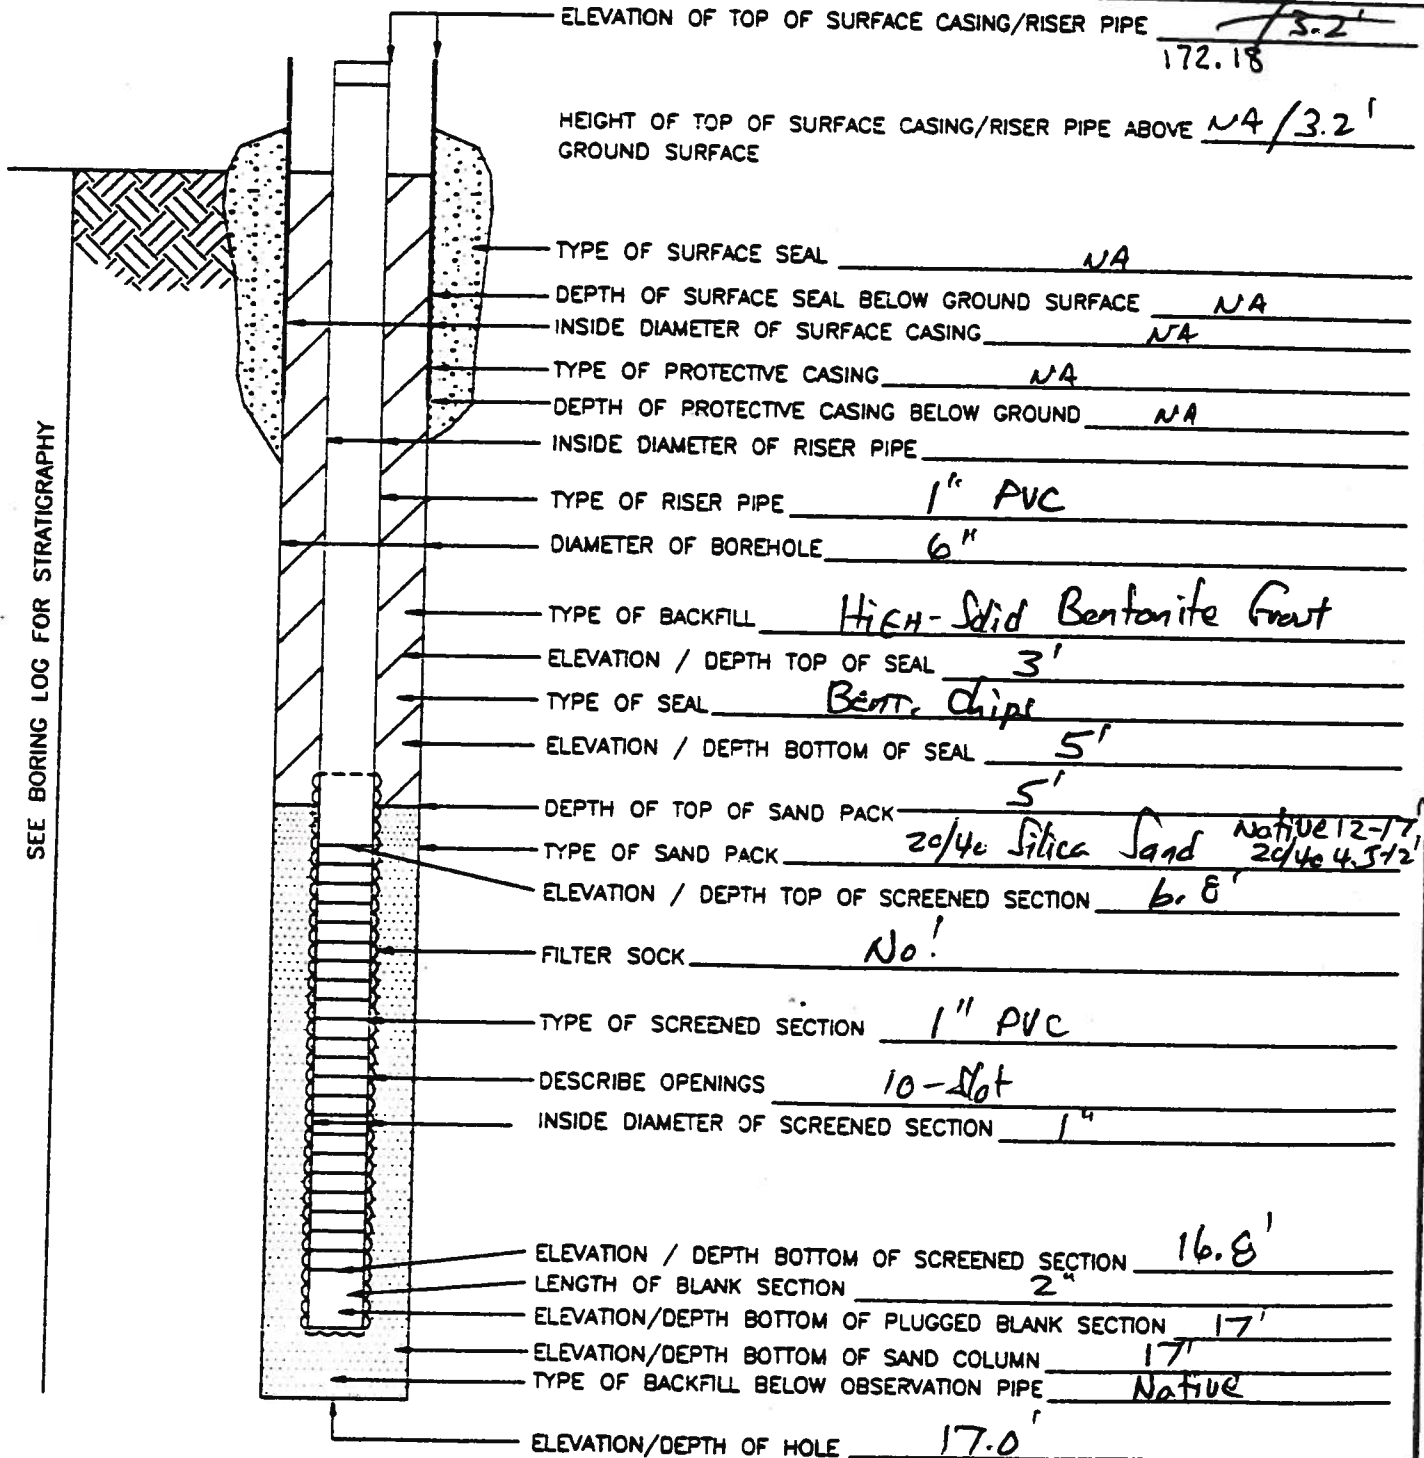 ELEVATION OF TOP OF SURFACE CASING/RISER PIPE / 3.2'
172.18
HEIGHT OF TOP OF SURFACE CASING/RISER PIPE ABOVE NA / 3.2'
GROUND SURFACE
TYPE OF SURFACE SEAL NA
DEPTH OF SURFACE SEAL BELOW GROUND SURFACE NA
INSIDE DIAMETER OF SURFACE CASING NA
TYPE OF PROTECTIVE CASING NA
DEPTH OF PROTECTIVE CASING BELOW GROUND NA
INSIDE DIAMETER OF RISER PIPE
TYPE OF RISER PIPE 1" PVC
DIAMETER OF BOREHOLE 6"
TYPE OF BACKFILL HIGH-Solid Bentonite Grout
ELEVATION / DEPTH TOP OF SEAL 3'
TYPE OF SEAL BENT. Chips
ELEVATION / DEPTH BOTTOM OF SEAL 5'
DEPTH OF TOP OF SAND PACK 5'
TYPE OF SAND PACK 20/40 Silica Sand Native 12-17'
20/40 4.5-12'
ELEVATION / DEPTH TOP OF SCREENED SECTION 6.8'
FILTER SOCK No!
TYPE OF SCREENED SECTION 1" PVC
DESCRIBE OPENINGS 10-Slot
INSIDE DIAMETER OF SCREENED SECTION 1"
ELEVATION / DEPTH BOTTOM OF SCREENED SECTION 16.8'
LENGTH OF BLANK SECTION 2"
ELEVATION/DEPTH BOTTOM OF PLUGGED BLANK SECTION 17'
ELEVATION/DEPTH BOTTOM OF SAND COLUMN 17'
TYPE OF BACKFILL BELOW OBSERVATION PIPE Native
ELEVATION/DEPTH OF HOLE 17.0'
SEE BORING LOG FOR STRATIGRAPHY